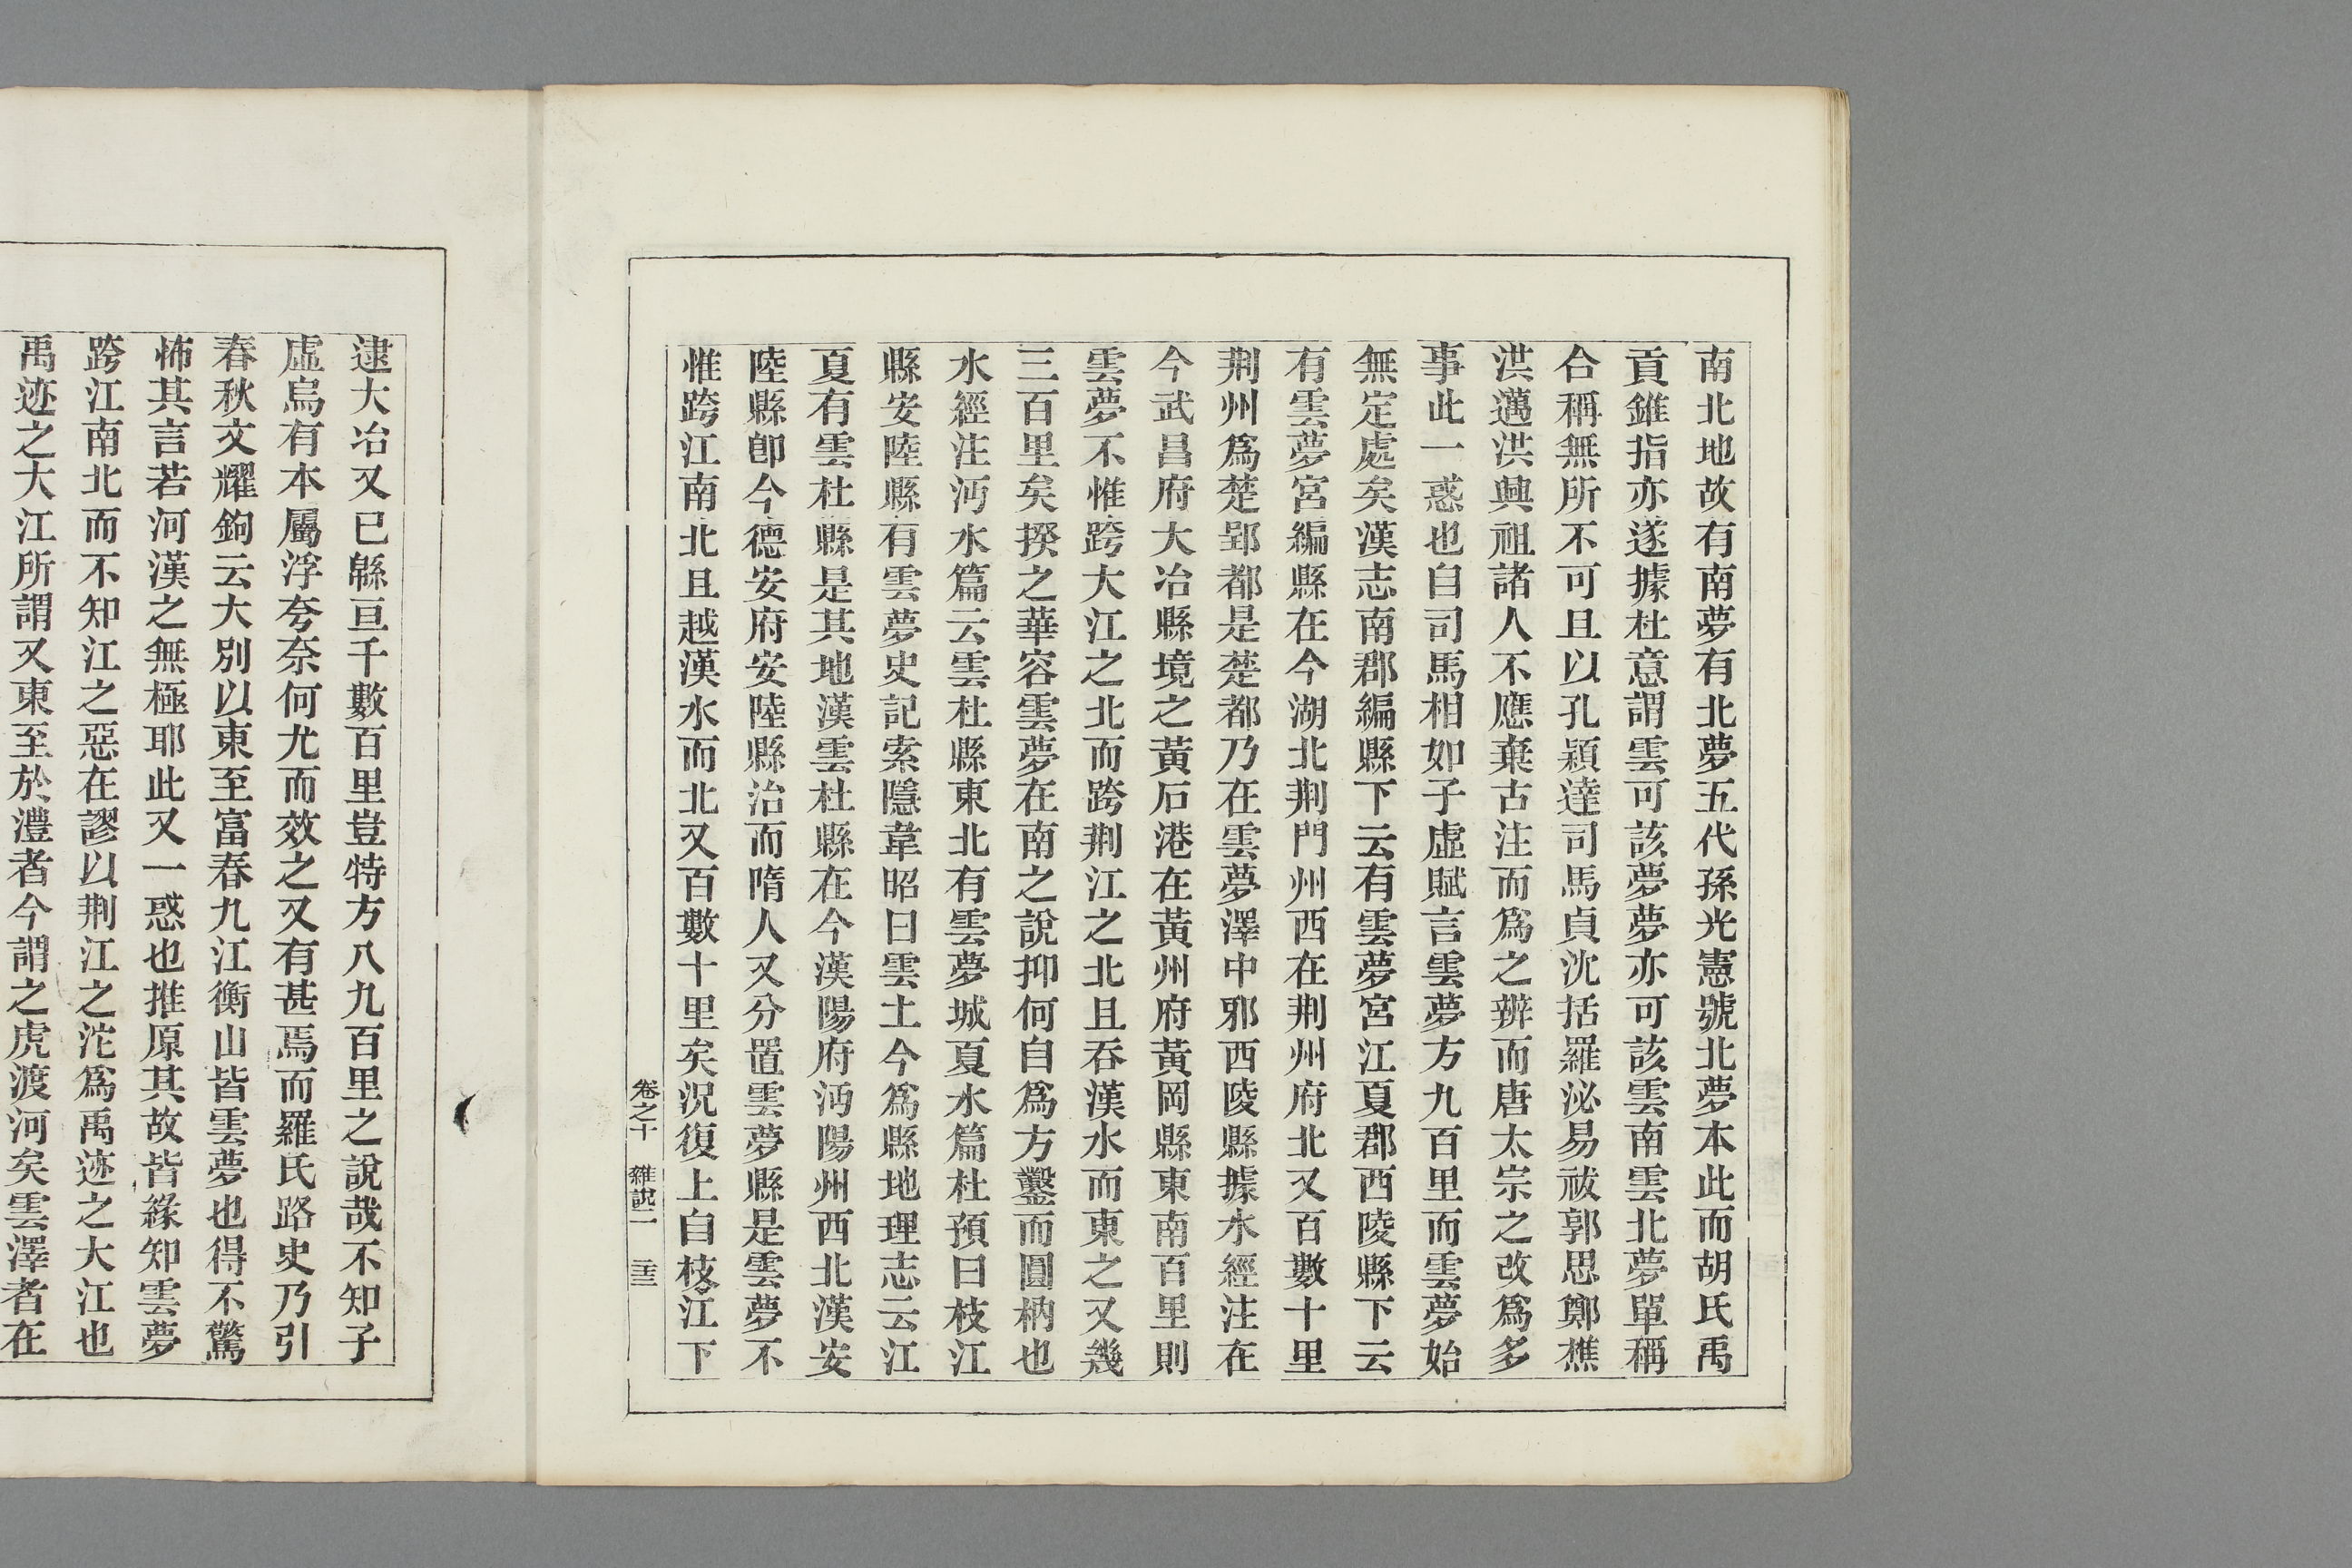 南北地故有南夢有北夢五代孫光憲號北夢本此而胡氏禹
貢錐指亦遂據杜意謂雲可該夢夢亦可該雲南雲北夢單稱
合稱無所不可且以孔穎達司馬貞沈括羅泌易祓郭思鄭樵
洪邁洪興祖諸人不應棄古注而爲之辨而唐太宗之改爲多
事此一惑也自司馬相如子虛賦言雲夢方九百里而雲夢始
無定處矣漢志南郡編縣下云有雲夢宮江夏郡西陵縣下云
有雲夢宮編縣在今湖北荆門州西在荆州府北又百數十里
荆州爲楚郢都是楚都乃在雲夢澤中邪西陵縣據水經注在
今武昌府大冶縣境之黃石港在黃州府黃岡縣東南百里則
雲夢不惟跨大江之北而跨荆江之北且吞漢水而東之又幾
三百里矣揆之華容雲夢在南之說抑何自爲方鑿而圓枘也
水經注沔水篇云雲杜縣東北有雲夢城夏水篇杜預曰枝江
縣安陸縣有雲夢史記索隱韋昭曰雲土今爲縣地理志云江
夏有雲杜縣是其地漢雲杜縣在今漢陽府沔陽州西北漢安
陸縣卽今德安府安陸縣治而隋人又分置雲夢縣是雲夢不
惟跨江南北且越漢水而北又百數十里矣況復上自枝江下
卷之十 雜說二 三三
逮大冶又已緜亘千數百里豈特方八九百里之說哉不知子
虛烏有本屬浮夸奈何尤而效之又有甚焉而羅氏路史乃引
春秋文耀鉤云大別以東至富春九江衡山皆雲夢也得不驚
怖其言若河漢之無極耶此又一惑也推原其故皆緣知雲夢
跨江南北而不知江之惡在謬以荆江之沱爲禹迹之大江也
禹迹之大江所謂又東至於澧者今謂之虎渡河矣雲澤者在